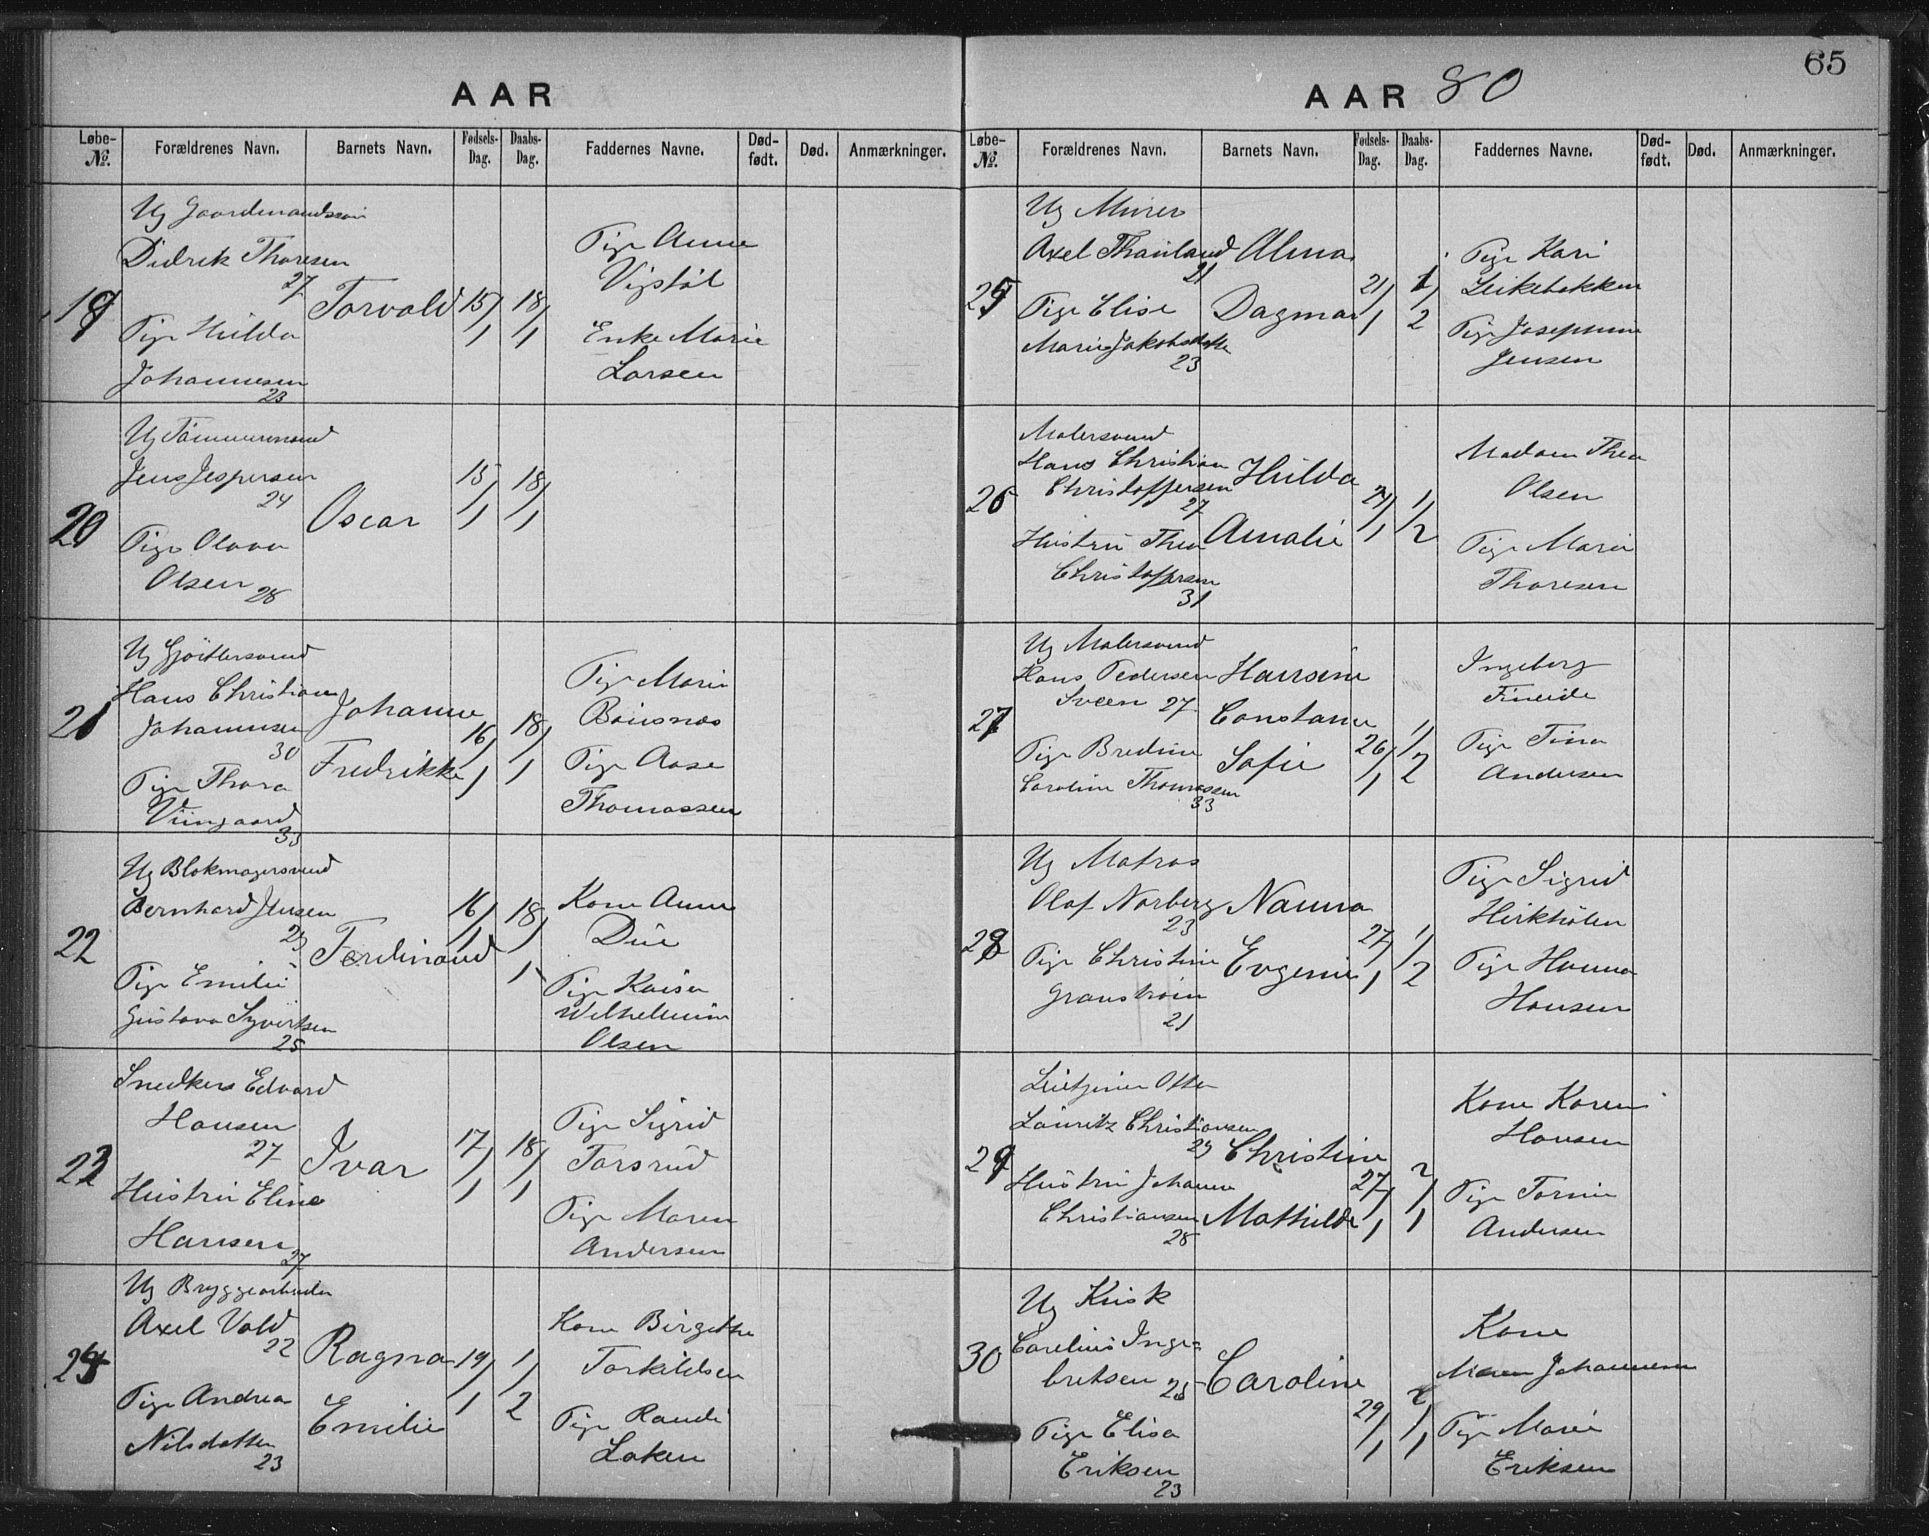 AAR
Løbe- №. Forældrenes Navn. Barnets Navn. Fødsels-Dag. Daabs-Dag. Faddernes Navne. Død-født. Død. Anmærkninger.
19
Ug Gaardmandssøn
Didrik Thoresen
27
Pige Hulda
Johannesen
23
Torvald
15/1
18/1
Pige Anne
Vigstøl
Enke Marie
Larsen
20
Ug Tømmermand
Jens Jespersen
24
Pige Olava
Olsen 28
Oscar
15/1
18/1
21
Ug Gjøitlersvend
Hans Christian
Johannsen
30
Pige Thora
Viingaard
33
Johanne
Fredrikke
16/1
18/1
Pige Marie
Bøusnæs
Pige Aase
Thomassen
22
Ug Blokmagersvend
Bernhard Jensen
23
Pige Emilie
Gustava Syvertsen
25
Ferdinand
16/1
18/1
Kone Anne
Due
Pige Kaisa
Wilhelmine
Olsen
23
Snedkers Edvard
Hansen
27
Hustru Eline
Hansen
27
Ivar
17/1
18/1
Pige Sigrid
Torsrud
Pige Maren
Andersen
24
Ug Bryggearbeider
Axel Vold
22
Pige Andrea
Nilsdatter
23
Ragna
Emilie
19/1
1/2
Kone Birgitte
Torkildsen
Pige Randi
Løken
65
AAR 80
Løbe- №. Forældrenes Navn. Barnets Navn. Fødsels-Dag. Daabs-Dag. Faddernes Navne. Død-født. Død. Anmærkninger.
25
Ug Murer
Axel Thauland
21
Pige Elise
Marie Jakobsdatter
23
Alma
Dagmar
21/1
1/2
Pige Kari
Leikebakken
Pige Josephine
Jensen
26
Malersvend
Hans Christian
Christoffersen
27
Hustru Thea
Christoffersen
31
Hulda
Amalie
24/1
1/2
Madam Thea
Olsen
Pige Marie
Thoresen
27
Ug Malersvend
Hans Pedersen
Sveen 27
Pige Bredine
Caroline Thomassen
33
Hansine
Constance
Sofie
26/1
1/2
Ingeborg
Fineide
Pige Tina
Andersen
28
Ug Matros
Olaf Norberg
23
Pige Christine
Granstrøm
21
Nanna
Evgenie
27/1
1/2
Pige Sigrid
Hirkhølen
Pige Hanna
Hansen
29
Otto
Lauritz Christiansen
29
Hustru Johanne
Christiansen
28
Christine
Mathilde
27/1
2/1
Kone Karen
Hansen
Pige Tornie
Andersen
30
Ug Kusk
Carelius Inge-
bretsen 25
Pige Elisa
Eriksen
23
Caroline
29/1
2/1
Kone
Maren Johannesen
Pige Marie
Eriksen